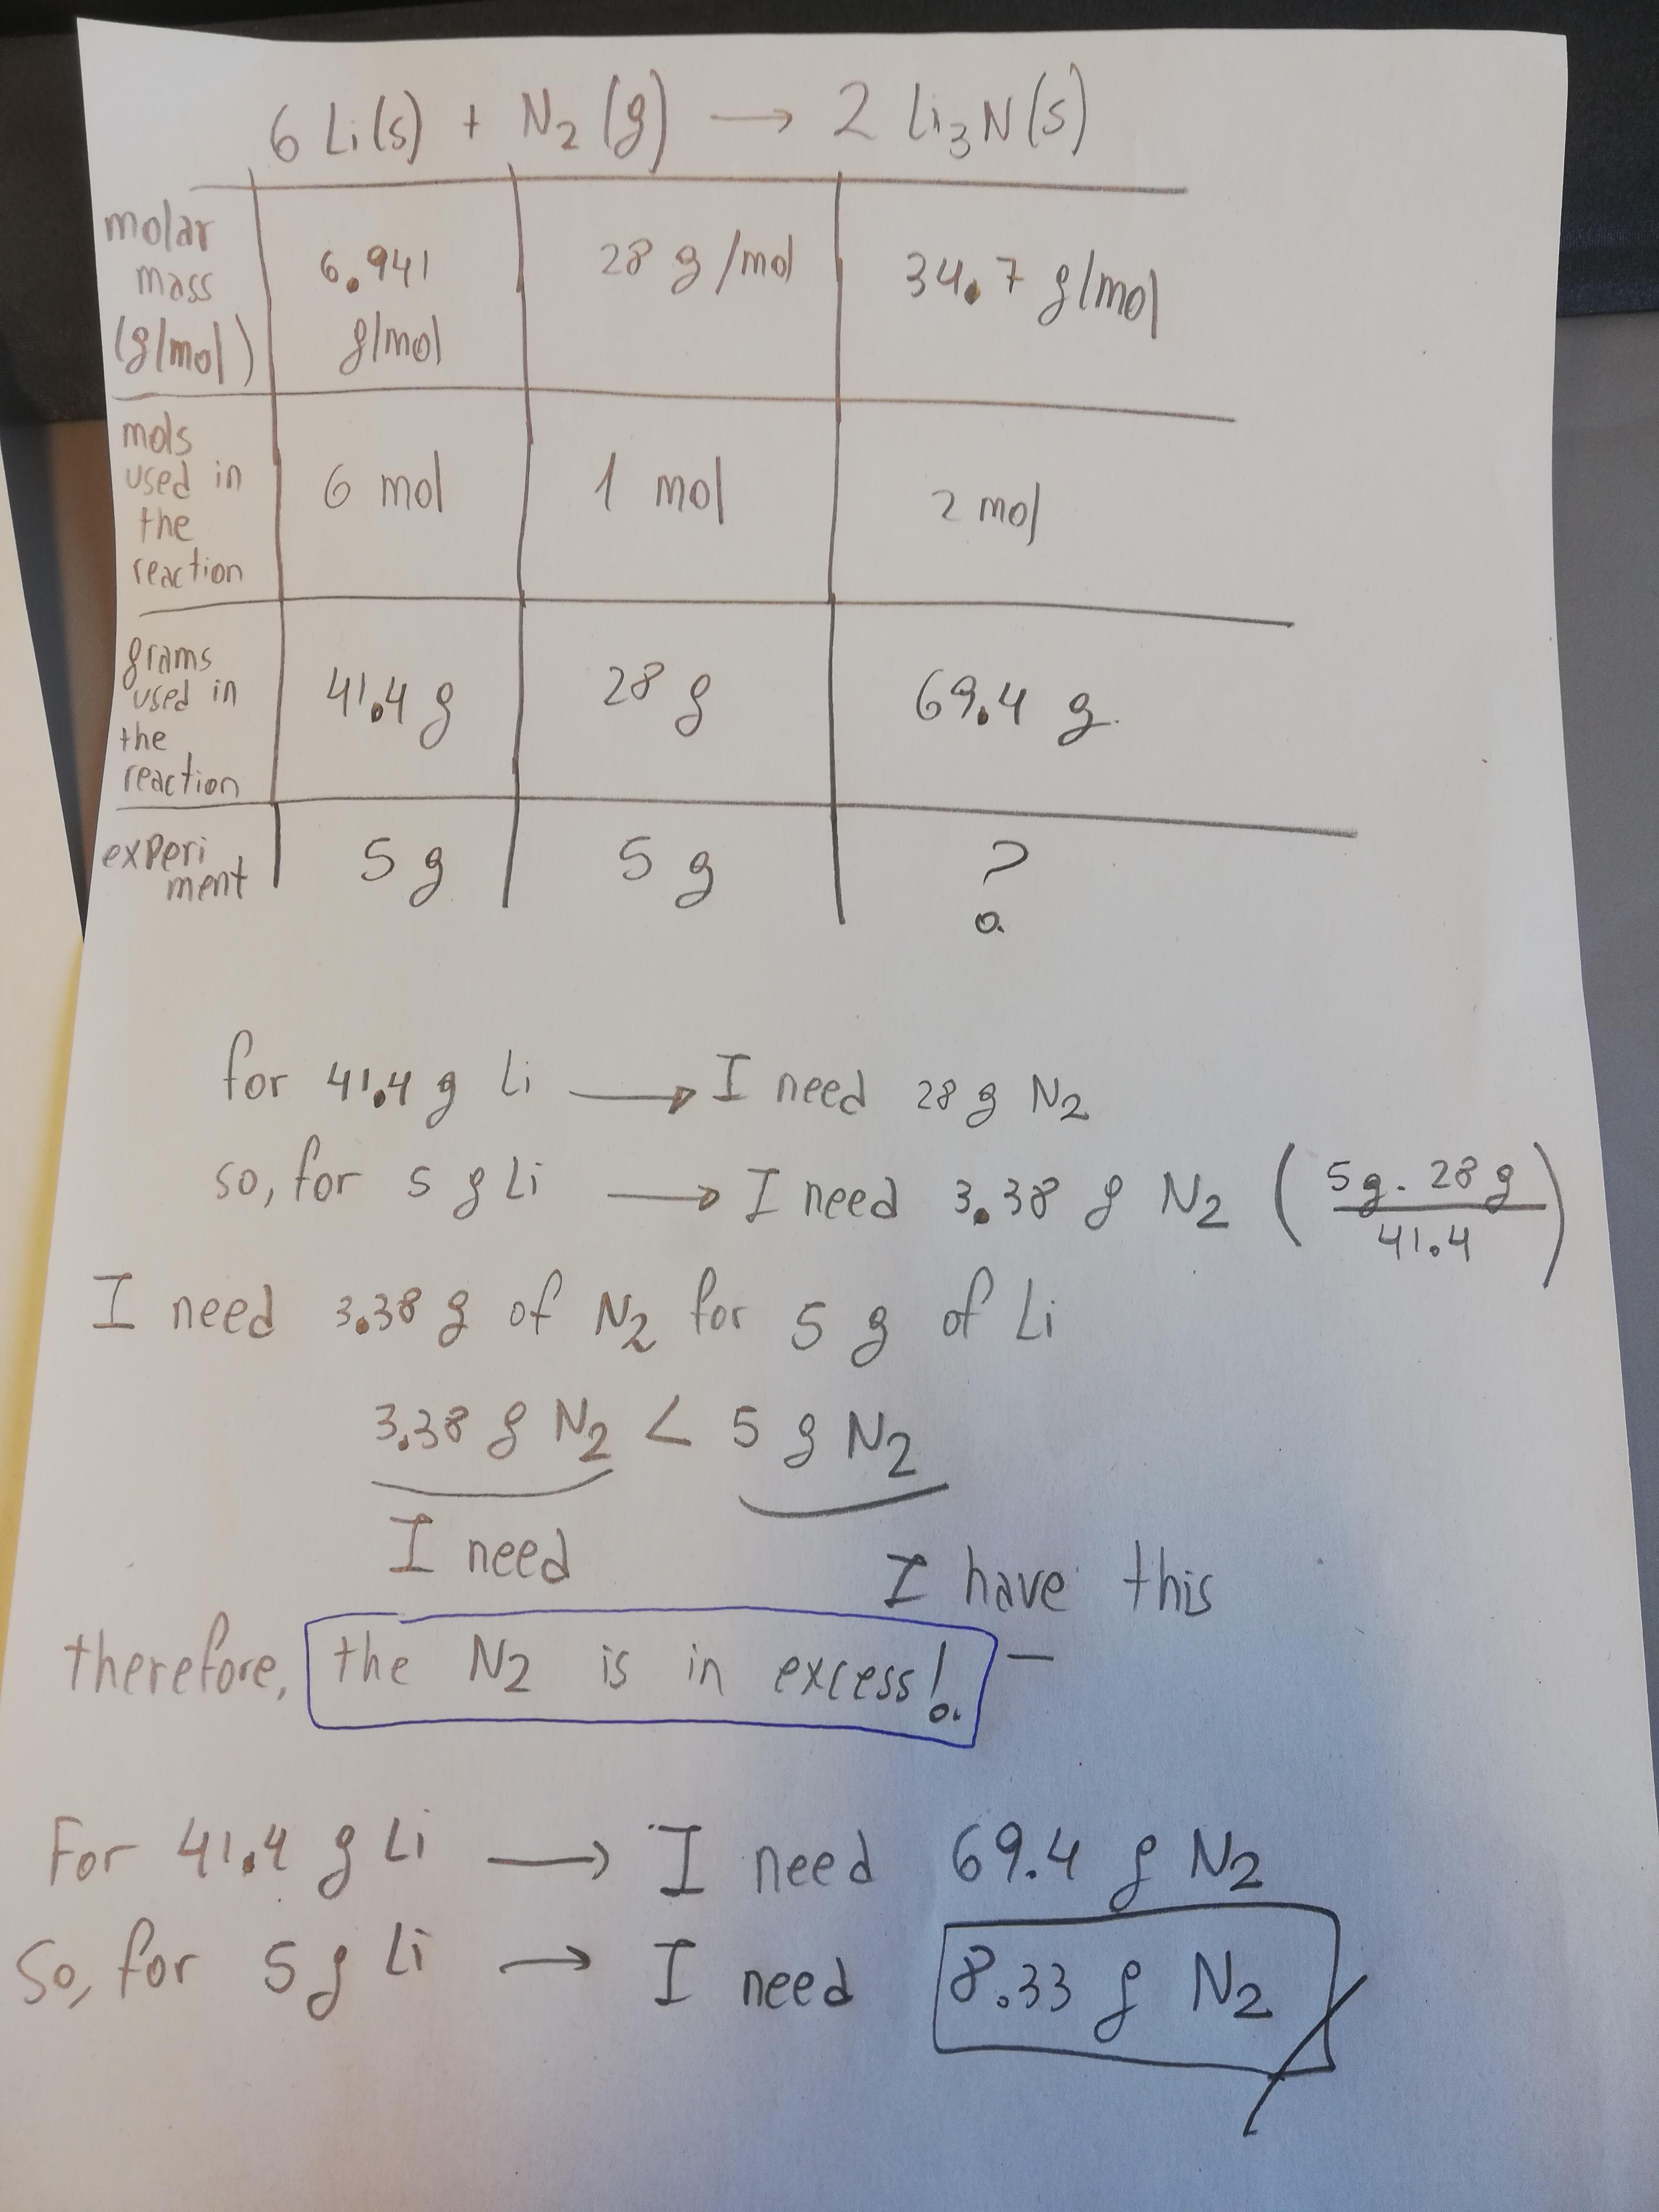 6 Li(s) + N2 (g) → 2 Li3N(s)
molar mass (g/mol) 6.941 g/mol 28 g/mol 34.7 g/mol
mols used in the reaction 6 mol 1 mol 2 mol
grams used in the reaction 41.4 g 28 g 69.4 g.
experi ment 5 g 5 g ?
for 41.4 g Li → I need 28 g N2
so, for 5 g Li → I need 3.38 g N2 (5g. 28 g / 41.4)
I need 3.38 g of N2 for 5 g of Li
3.38 g N2 < 5 g N2
I need I have this
therefore, the N2 is in excess! –
For 41.4 g Li → I need 69.4 g N2
So, for 5 g Li → I need 8.33 g N2